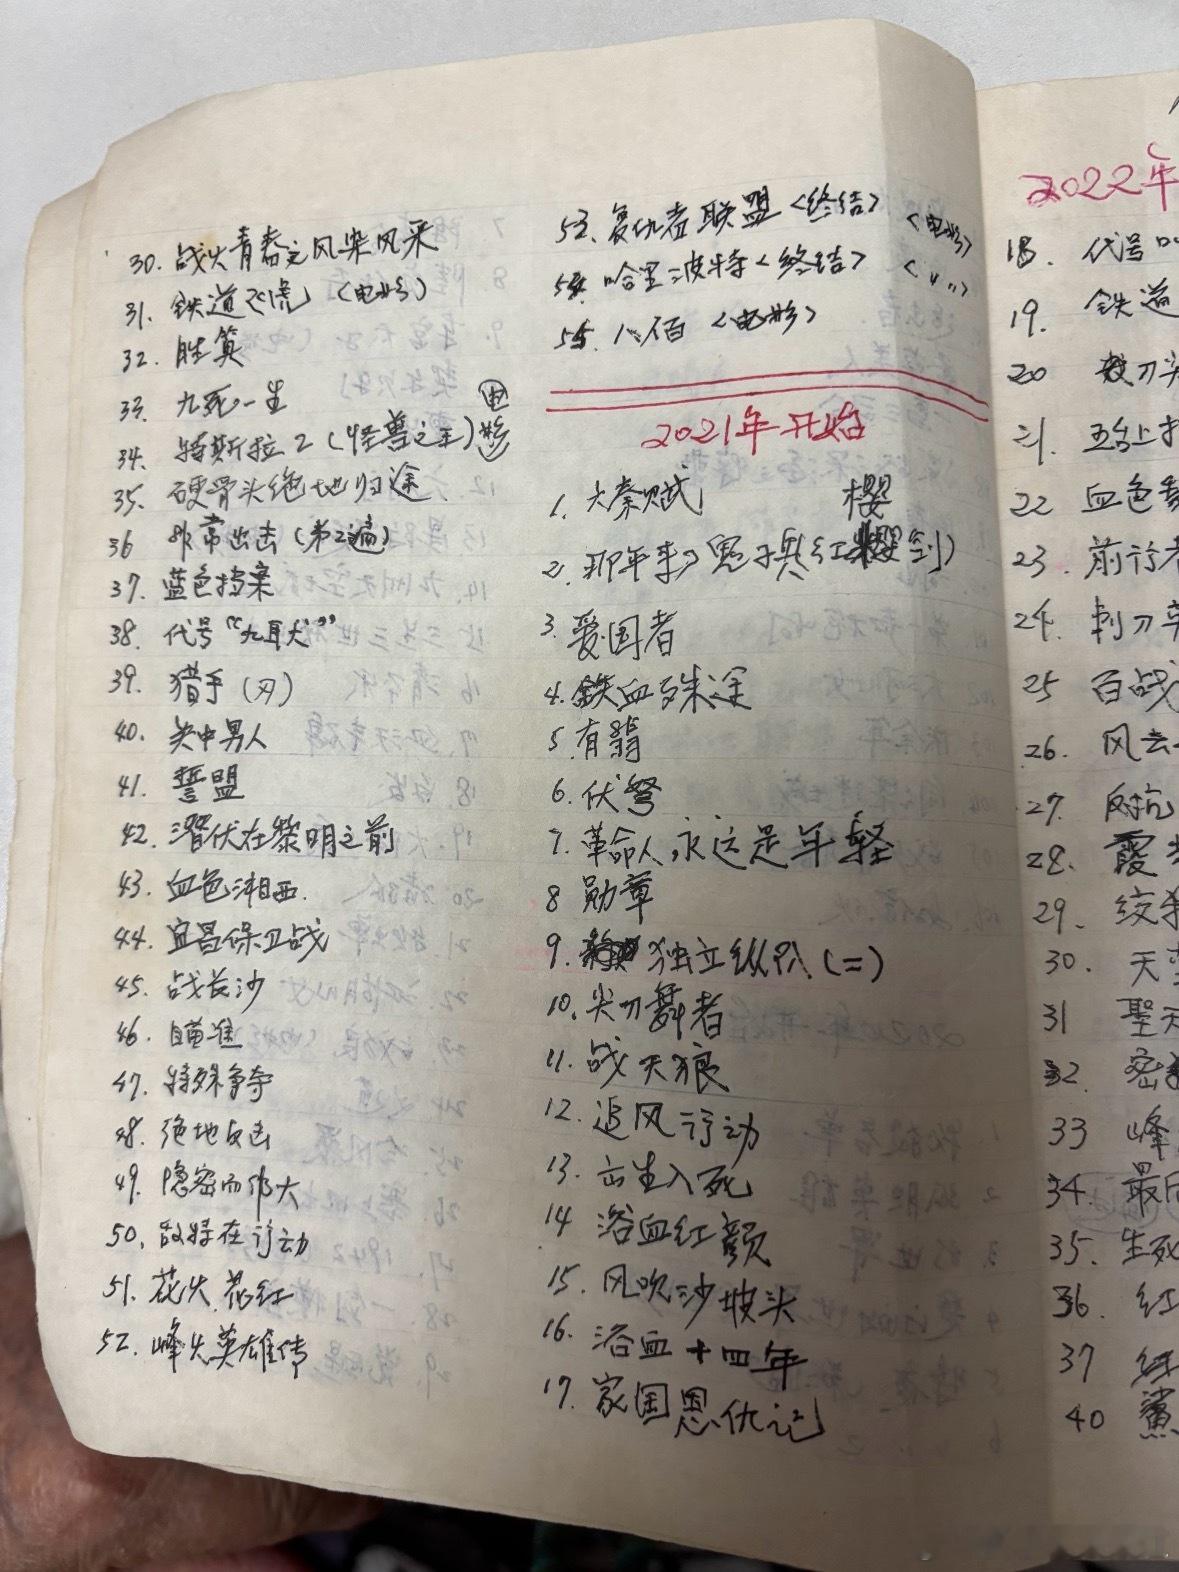 30. 战火青春之风染风采
31. 铁道飞虎 (电影)
32. 胜算
33. 九死一生
34. 特斯拉2 (怪兽之王) 电影
35. 硬骨头绝地归途
36 非常出击 (第2遍)
37. 蓝色档案
38. 代号“九耳犬”
39. 猎手 (刃)
40. 关中男人
41. 誓盟
42. 潜伏在黎明之前
43. 血色湘西.
44. 宜昌保卫战
45. 战长沙
46. 瞄准
47. 特殊争夺
48. 绝地反击
49. 隐密而伟大
50. 敌特在行动
51. 花火花红
52. 峰火英雄传
53. 复仇者联盟<终结> <电影>
54. 哈里波特<终结> < 〃 >
55. 八佰 <电影>
2021年开始
1. 大秦赋
樱
2. 那年来了鬼子兵(红樱剑)
3. 爱国者
4. 鉄血殊途
5. 有翡
6. 伏弩
7. 革命人永远是年轻
8 勋章
9. 独立纵队 (二)
10. 尖刀舞者
11. 战天狼
12. 追风行动
13. 出生入死
14 浴血红颜
15. 风吹沙坡头
16. 浴血十四年
17. 家国恩仇记
2022年
18. 代号
19. 鉄道
20
21. 五台上
22 血色
23. 前行者
24. 刺刀
25 百战
26. 风云
27. 反抗
28. 霞
29. 绞
30. 天
31 聖天
32. 密
33 峰
34. 最后
35. 生死
36. 红
37 红
40 鲨